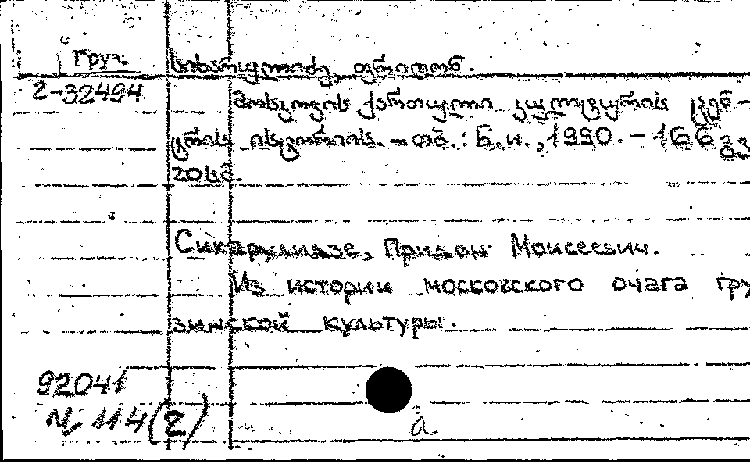 Груз.
სიხარულიძე ფრიდონ.
2-32494
მოსკოვის ქართული კულტურის ცენ-
ტრის ისტორიის. - თბ. : Б.и., 1990. - 166 გვ
20სმ.
Сихарулидзе, Придон Моисеевич.
Из истории московского очага гру
зинской культуры.
92041
N 114(2)
а